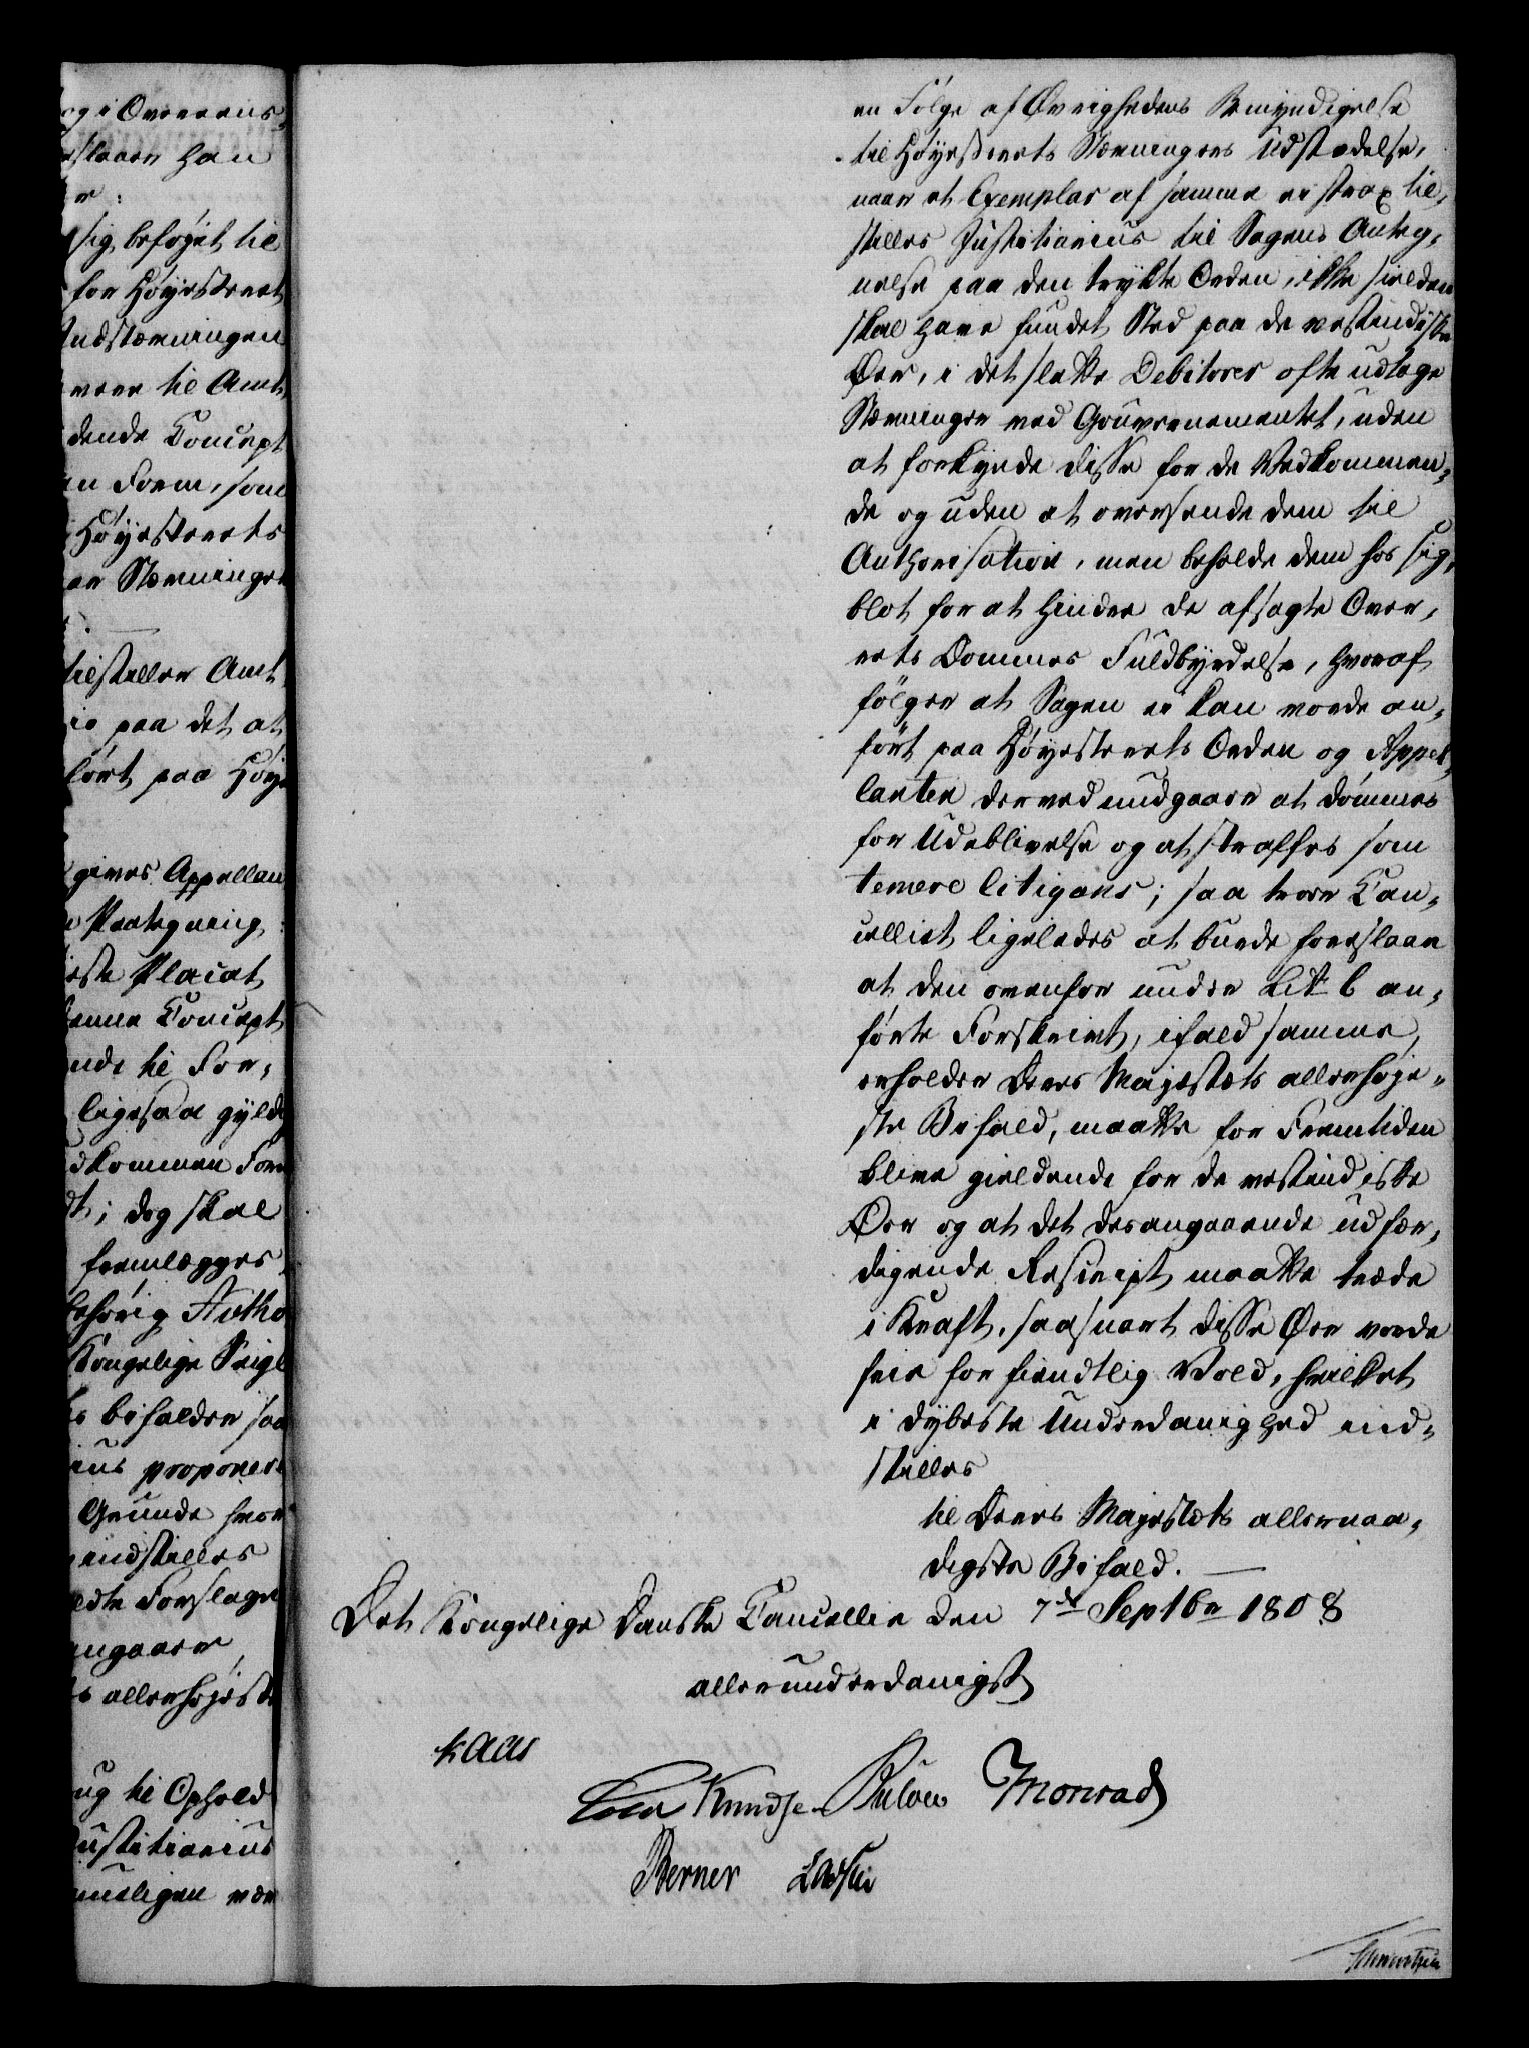 og i Overeens-
slaaer han
r:
sig beføjet til
for Høyesteret
Indstævningen
være til Amt
dende Concept
en Form, som
Høyesterets
ær Stævninger
tilstiller Amt
io paa det at
ført paa Høye
gives Appellan
e Paategning
este Placat
denne Concept
nde til For-
ligesaa gyld
dkommen For
dt; dog skal
fremlægges
behørig Autho
Kongelige Seigl
s bifalder saa
ius proponer
Grunde hvor
indstilles
ldte Forslag
angaaer
s allerhøjest
ug til Ophold
Justitiarius
muligen vær
en Følge af Øvrighedens Bemyndigelse
til Høyesterets Stævningers Udstædelse,
naar et Exemplar af samme ei strax til-
stilles Justitiarius til Sagens Anteg-
nelse paa den trykte Orden, ikke sielden
skal have fundet Sted paa de vestindiske
Øer, i det slette Debitores ofte udtage
Stævninger ved Gouvernementet, uden
at forkynde disse for de Vedkommen-
de og uden at oversende dem til
Authorisation, men beholde dem hos sig,
blot for at hindre de afsagte Over-
rets Dommes Fuldbyrdelse, hvoraf
følger at Sagen ei kan vorde an-
ført paa Høyesterets Orden og Appel-
lanten derved undgaaer at dømmes
for Udeblivelse og at straffes som
temere litigans; saa troer Can-
celliet ligeledes at burde foreslaae
at den ovenfor under Litr b an-
førte Forskrivt, ifald samme
erholder Deres Majestæts allerhøje-
ste Bifald, maatte for Fremtiden
blive gieldende for de vestindiske
Øer og at det desangaaende udfær-
digende Rescript maatte træde
i Kraft, saasnart disse Øer vorde
frie for fiendtlig Vold, hvilket
i dybeste Underdanighed ind-
stilles
til Deres Majestæts allernaa-
digste Bifald.
Det Kongelige Danske Cancellie den 7de Septbr 1808
allerunderdanigst
Kaas
Cold Knudsen Bülow Monrad
Berner Lassen